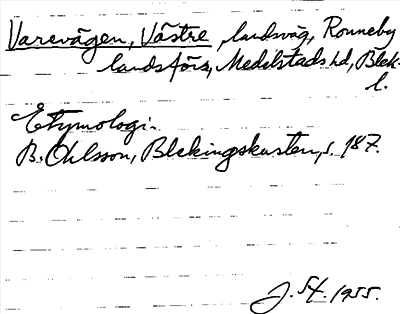 Varevägen, Västre, landsväg, Ronneby
landsförs, Medelstads hd, Blek.
l.
Etymologi.
B. Ohlsson, Blekingskusten, s. 187.
J. St. 1955.